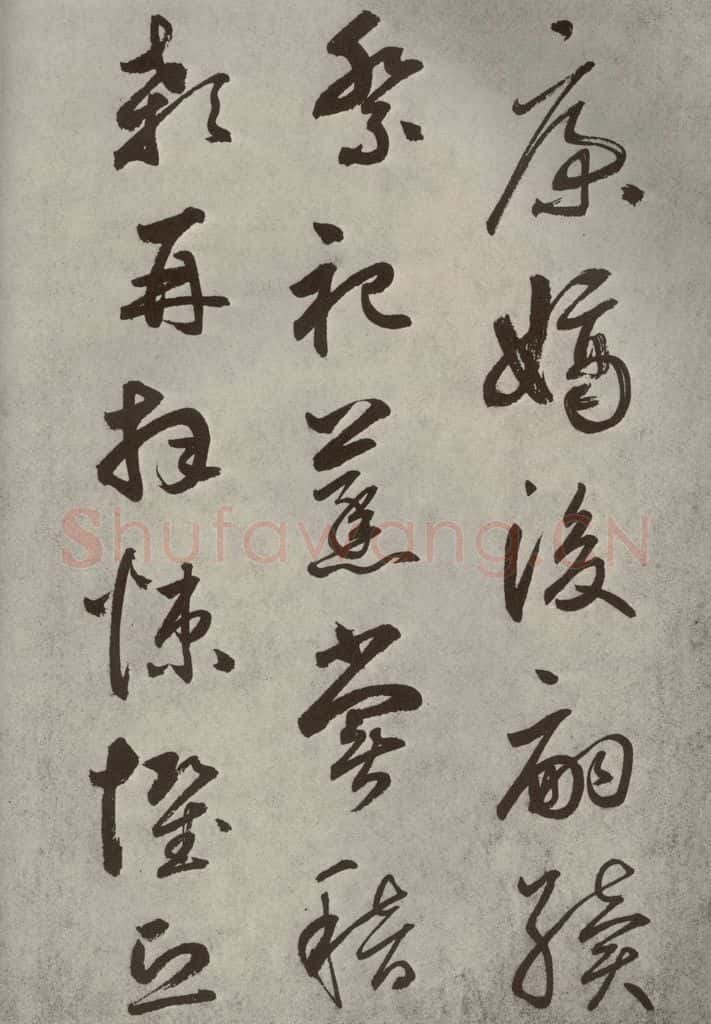 康嫡後嗣續
祭祀蒸嘗稽
顙再拜悚懼恐
Shufawang.CN